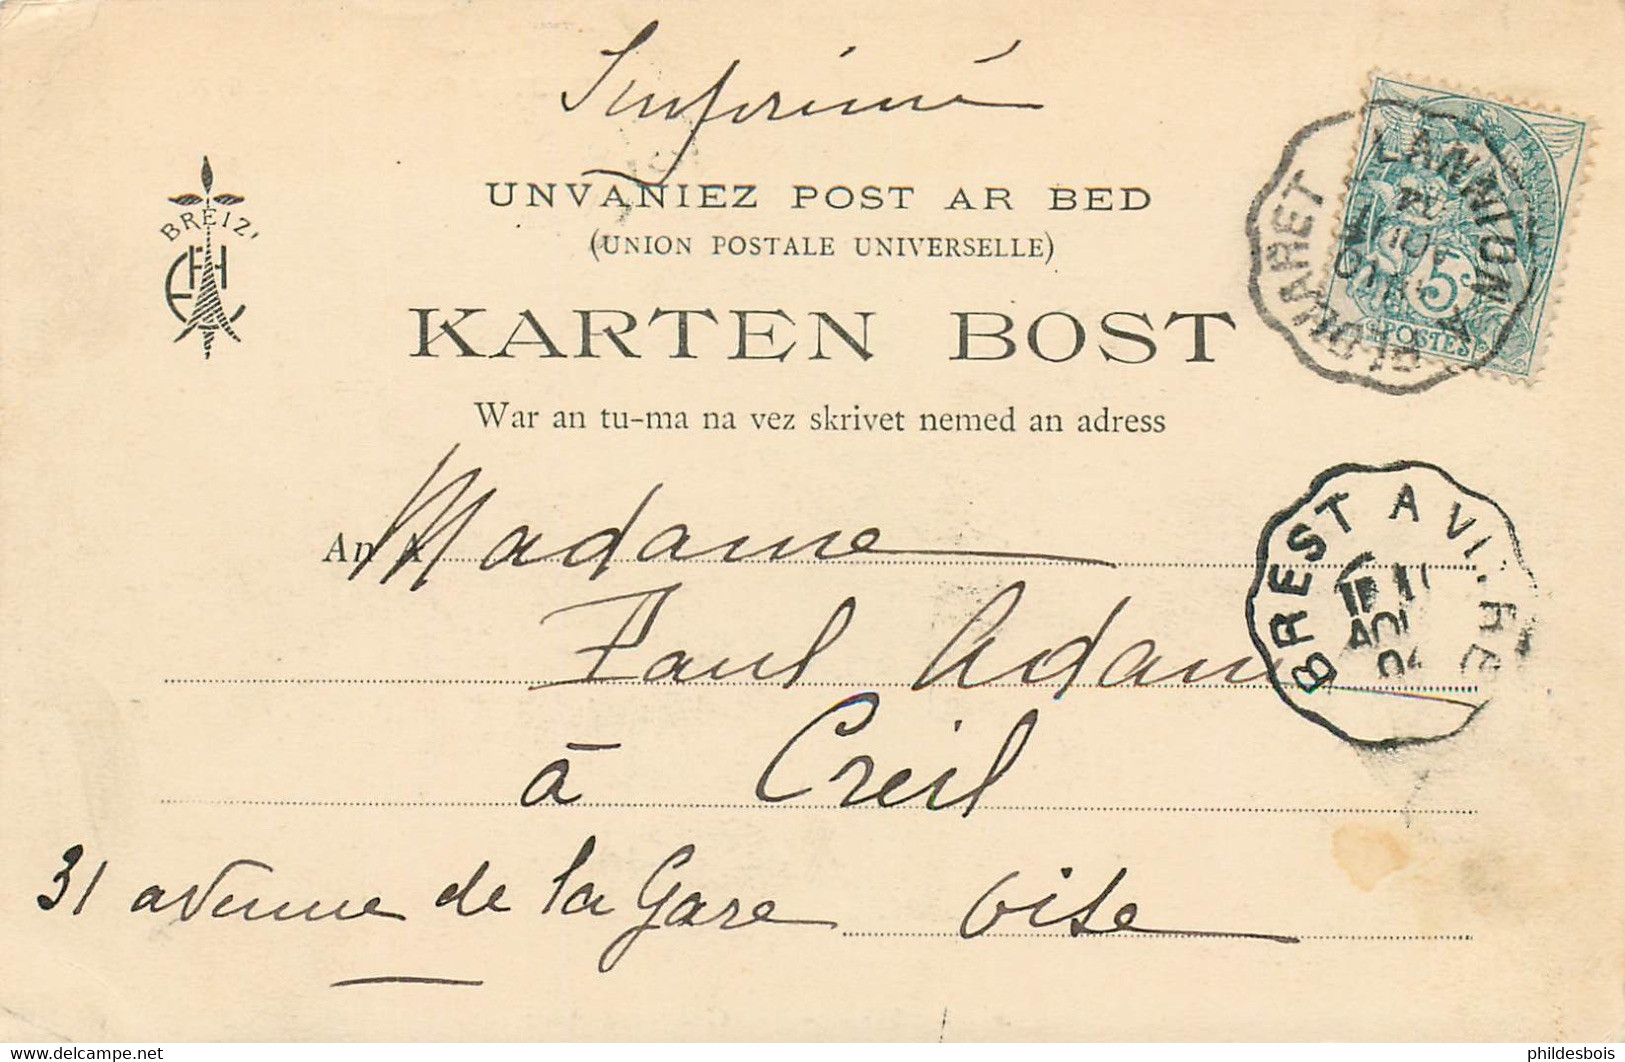 Imprimé
UNVANIEZ POST AR BED
(UNION POSTALE UNIVERSELLE)
BREIZ
KARTEN BOST
War an tu-ma na vez skrivet nemed an adress
LANNION A PLOUARET
5c
POSTES
BREST A VITRÉ
AOU
04
An
Madame
Paul Adam
à Creil
31 avenue de la Gare Oise
delcampe.net
phildesbois